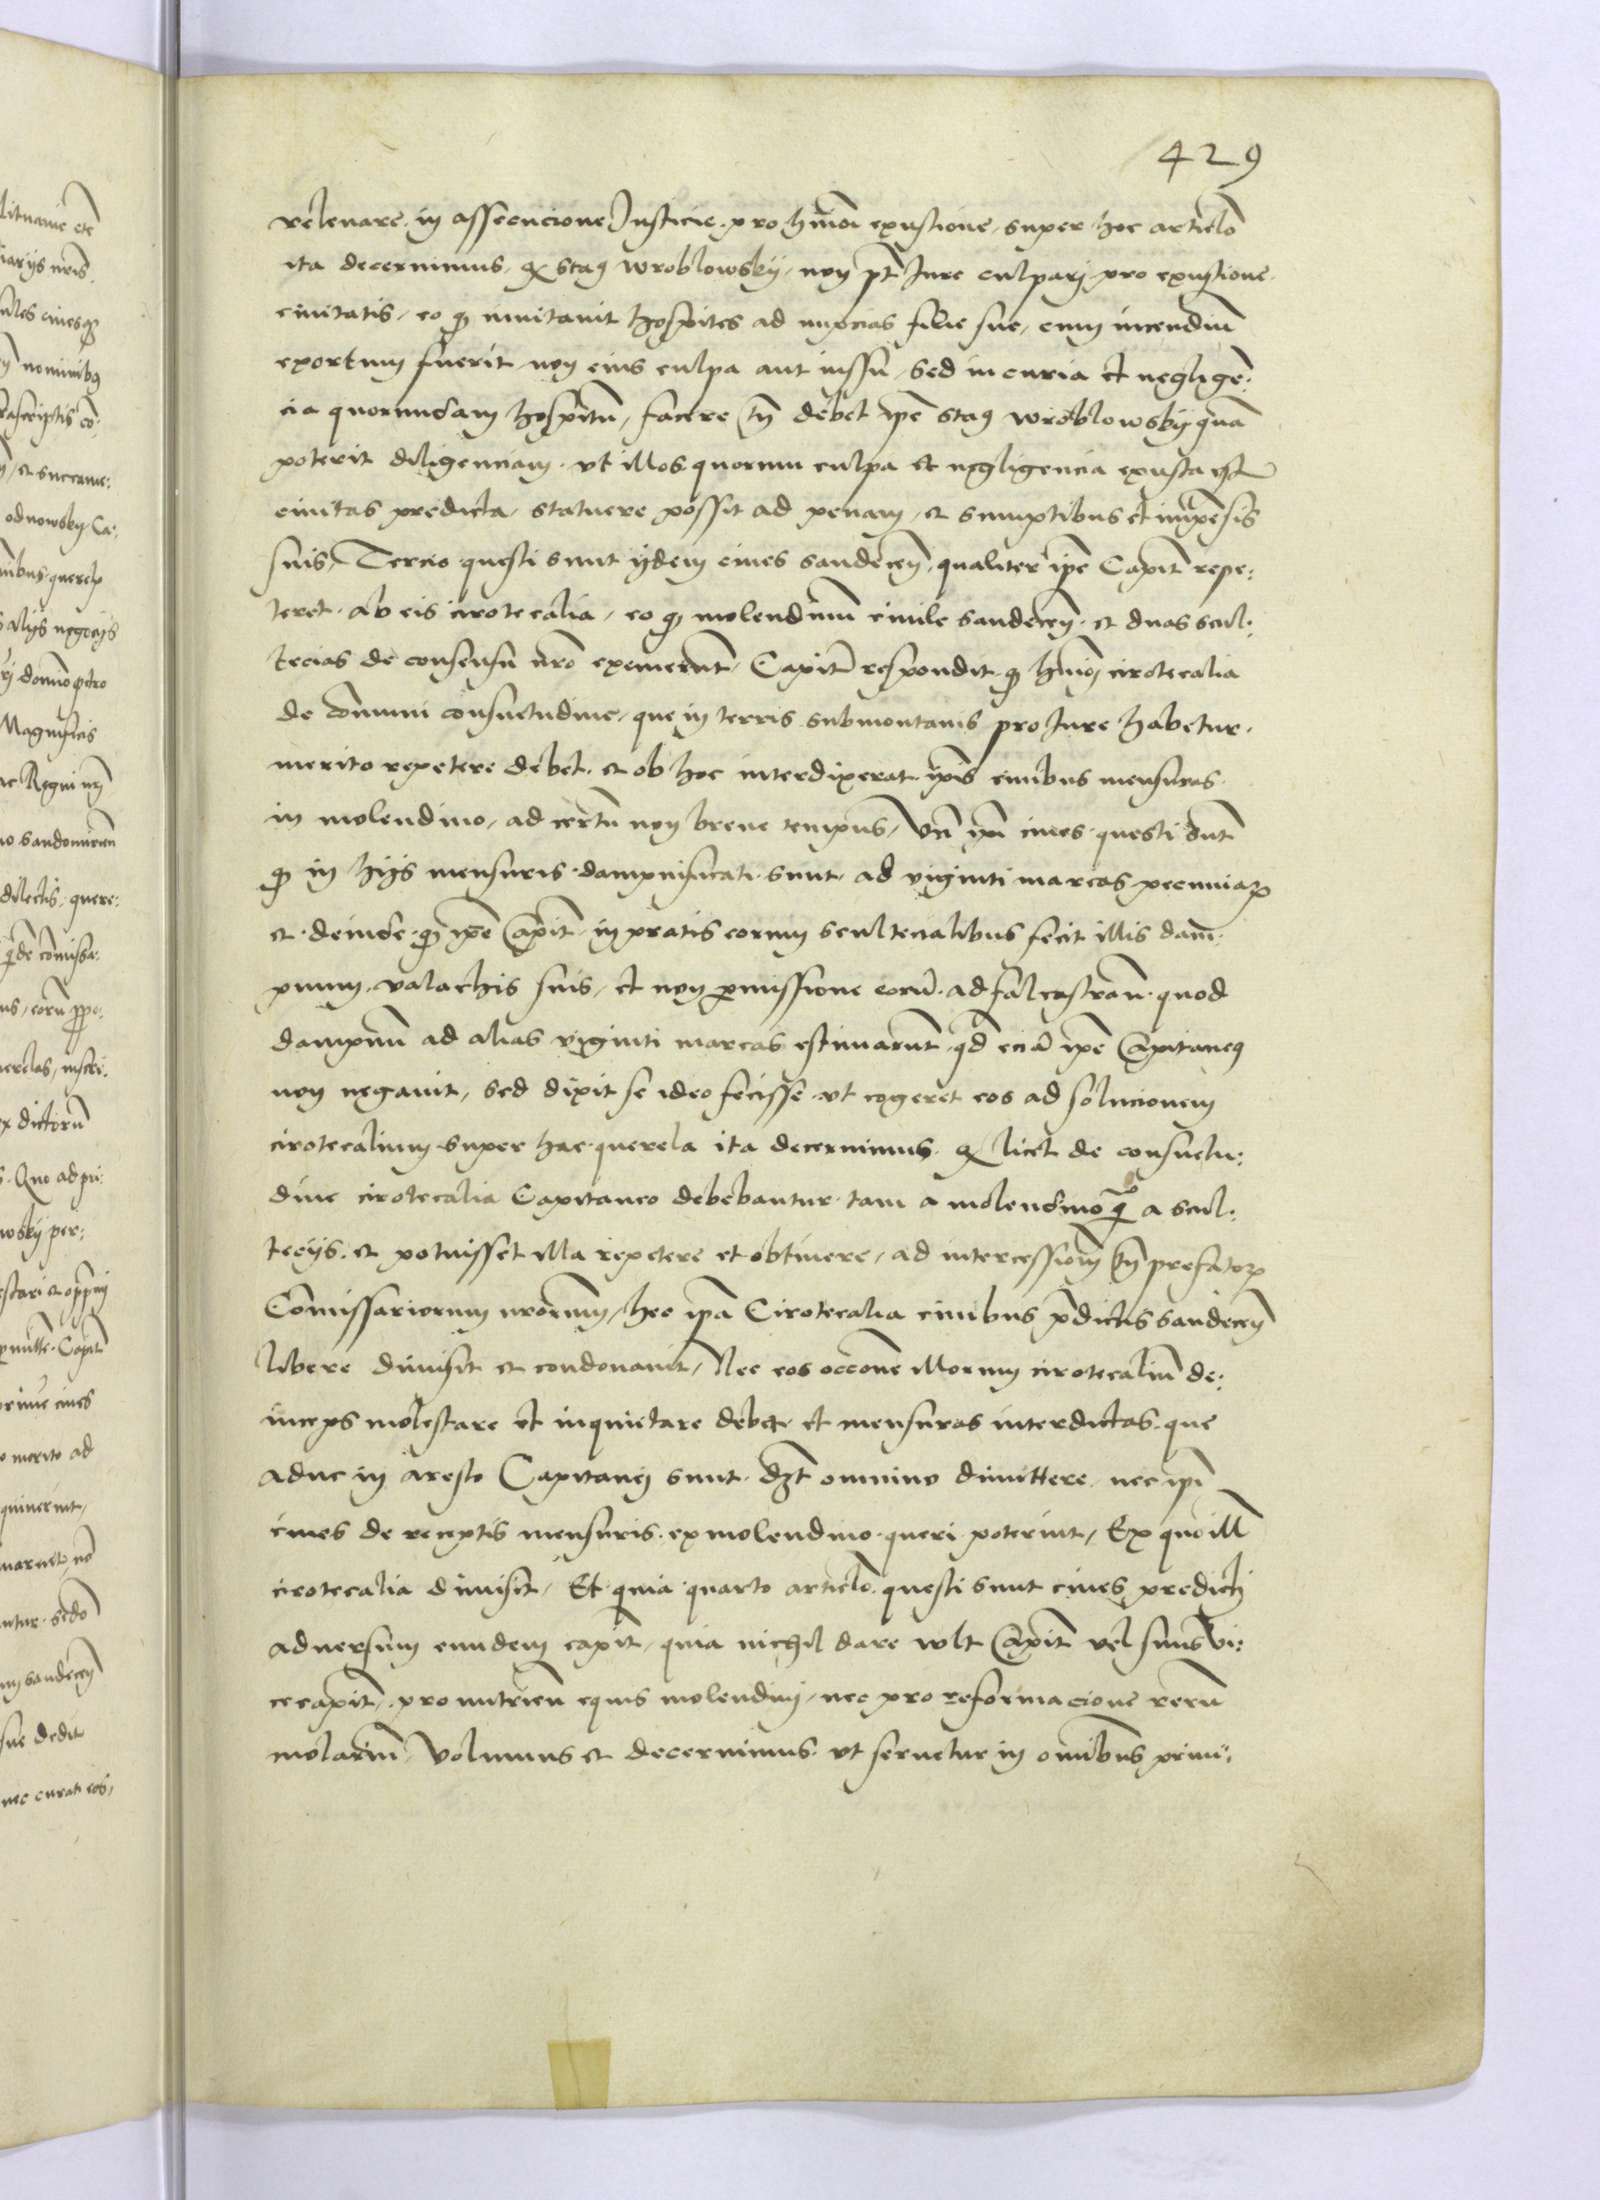 429
relevare in assecucione Justicie pro hmoi exustione super hoc articlo
ita decernimus, q stas wroblowsky, non pt Jure culparj pro exustione
civitatis, eo q invitavit hospites ad nupcias filie sue, cum incendiu
exortum fuerit non eius culpa aut iussu, sed incuria et negligē:
cia quorundam hospitu, facere tn debet ipe stas wroblowsky quā
poterit diligenciam, ut illos quorum culpa et negligencia exusta est
civitas predicta, statuere possit ad penam, et sumptibus et impēsis
suis, Tercio questi sunt ijdem cives sandecen, qualiter ipe Capit repe:
teret ab eis cirotecalia, eo q molendinu civile sandecen et duas scul:
tecias de consensu nro exemerunt, Capit respondit q hmoi cirotecalia
de comuni consuetudine, que in terris submontanis pro Jure habetur
merito repetere debet et ob hoc interdixerat ipis civibus mensuras
in molendino, ad certu non breve tempus, Vn ipi cives questi sunt
q in hijs mensuris dampnificati sunt ad viginti marcas pecuniar
et deinde q ipe Capit in pratis eorum scultecialibus fecit illis dam:
pnum valachis suis, et non pmissione eoru ad falcastran quod
dampnu ad alias viginti marcas estimarunt qd eciā ipe Capitaneus
non negavit, sed dixit se ideo fecisse ut cogeret eos ad solucionem
cirotecalium super hac querela ita decernimus q licet de consuetu:
dine cirotecalia Capitaneo debebantur tam a molendino q a scul:
tecijs et potuisset illa repetere et obtinere, ad intercessionem tn prefator
Comissariorum nrorum, hec ipa Cirotecalia civibus pdictis sandecen
libere dimisit et condonavit, Nec eos occone illorum cirotecaliu de:
inceps molestare et inquietare debet et mensuras interdictas que
aduc in aresto Capitanej sunt dzt omnino dimittere nec ipi
cives de receptis mensuris ex molendino queri poterint, Ex quo ill
cirotecalia dimisit, Et quia quarto articlo questi sunt cives predicti
adversum eundem capit, quia nichil dare wlt Capit vel suus vi:
cecapit, pro nutrien equis molendinj, nec pro reformacione reru
molariu, Volumus et decernimus ut servetur in omnibus primi,